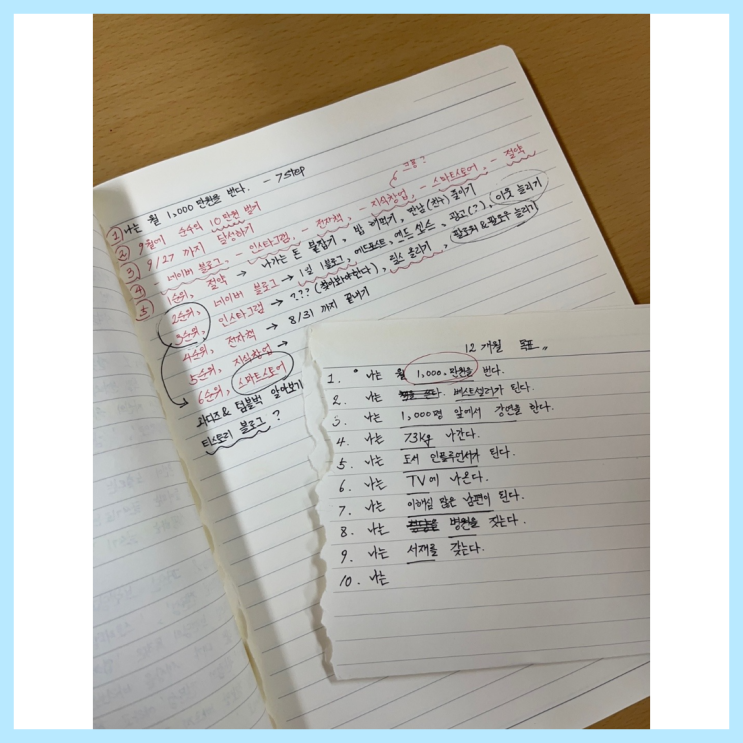 나는 월 1,000 만원을 번다. - 7step
① 9월에 순수익 10만원 벌기
② 9/27 까지 달성하기
크몽?
③ - 네이버 블로그, - 인스타그램, - 전자책, - 지식창업, - 스마트스토어, - 절약
④ 1순위, 절약 → 나가는 돈 붙잡기, 밥 해먹기, 만남(친구) 줄이기
⑤ 2순위, 네이버 블로그 → 1일 1블로그, 애드포스트, 애드센스, 광고(?), 이웃 늘리기
3순위, 인스타그램 → ???(찾아봐야한다), 릴스 올리기, 팔로워&팔로우 늘리기
4순위, 전자책 → 8/31 까지 끝내기
5순위, 지식창업 →
6순위, 스마트스토어
와디즈& 텀블벅 알아보기
티스토리 블로그 ?
12개월 목표
1. 나는 월 1,000.만원을 번다.
2. 나는 베스트셀러가 된다.
3. 나는 1,000명 앞에서 강연을 한다.
4. 나는 73kg 나간다.
5. 나는 도서 인플루언서가 된다.
6. 나는 TV에 나온다.
7. 나는 이해심 많은 남편이 된다.
8. 나는 병원을 짓는다.
9. 나는 서재를 갖는다.
10. 나는